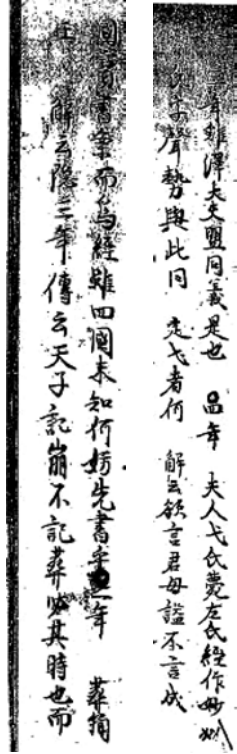 三年雞澤大夫盟同義是也 四年 夫人弋氏薨左氏經作姒姒
聲勢與此同 定弋者何 解云欲言君母謚不言成
書年而為經雖四國未知何妨先書乎 年 葬簡
解云隐三年傳云天子記崩不記葬必其時也而